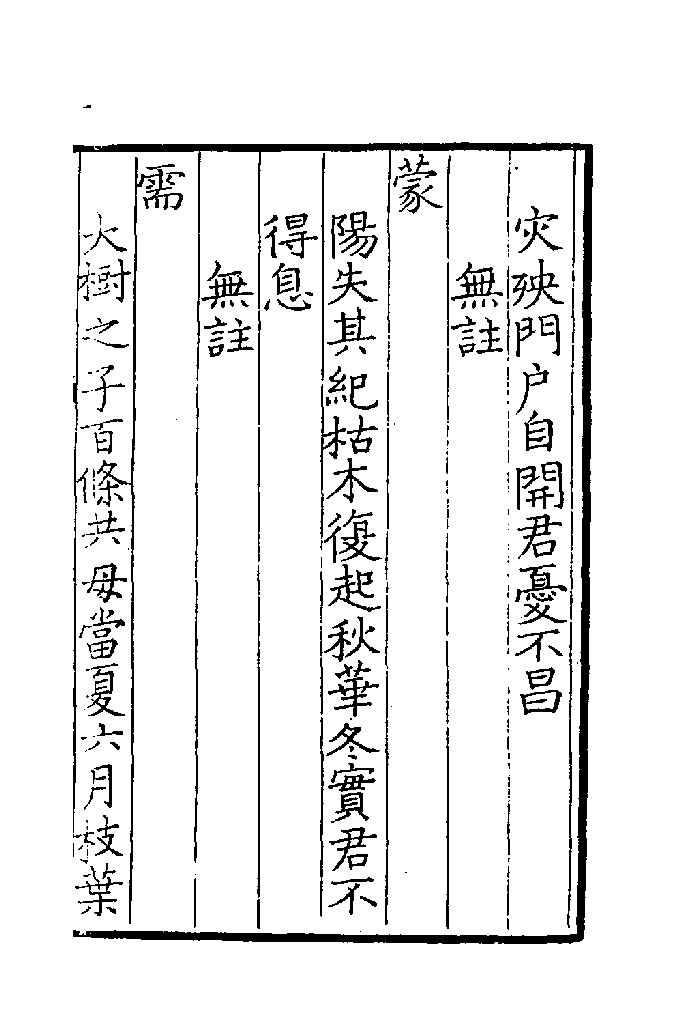 灾殃門户自開君憂不昌
無註
蒙
陽失其紀枯木復起秋華冬實君不
得息
無註
需
大樹之子百條共母當夏六月枝葉